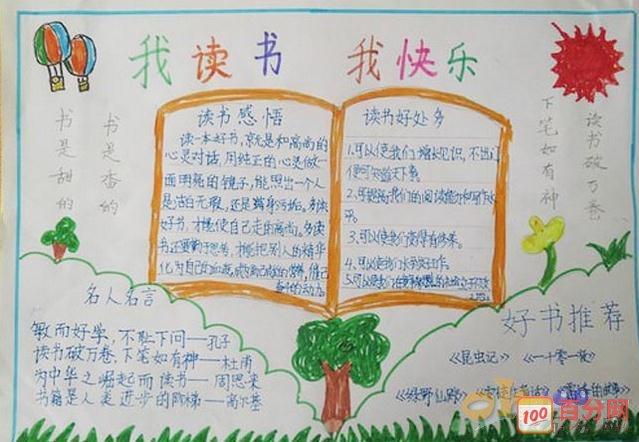 我读书 我快乐
书是香的
书是甜的
读书破万卷
下笔如有神
读书感悟
读一本好书,就是和高尚的
心灵对话,用纯正的心灵做一
面明亮的镜子,能照出一个人
是洁白无瑕,还是满身污垢。多读
好书,才能使自己走向高尚。多读
书还要勤于思考,才能把别人的精华
化为自己的血液,成为自己成长的营养,
奋斗的动力。
读书好处多
1.可以使我们增长见识,不出门
便可知道天下事。
2.可提高我们的阅读能力和写作水
平。
3.可以使我们变得有修养。
4.可以使我们
5.可以使我们在
名人名言
敏而好学,不耻下问——孔子
读书破万卷,下笔如有神——杜甫
为中华之崛起而读书——周恩来
书籍是人类进步的阶梯——高尔基
好书推荐
《昆虫记》《一千零一夜》
《绿野仙踪》
100 百分网